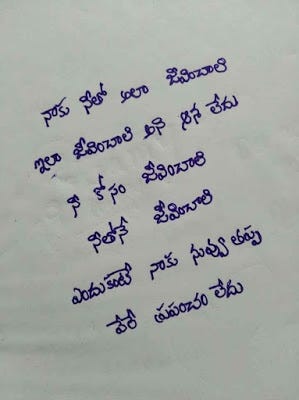 నాకు నీతో అలా జీవించాలి
ఇలా జీవించాలి అని ఆశ లేదు
నీ కోసం జీవించాలి
నీతోనే జీవించాలి
ఎందుకంటే నాకు నువ్వు తప్ప
వేరే ప్రపంచం లేదు